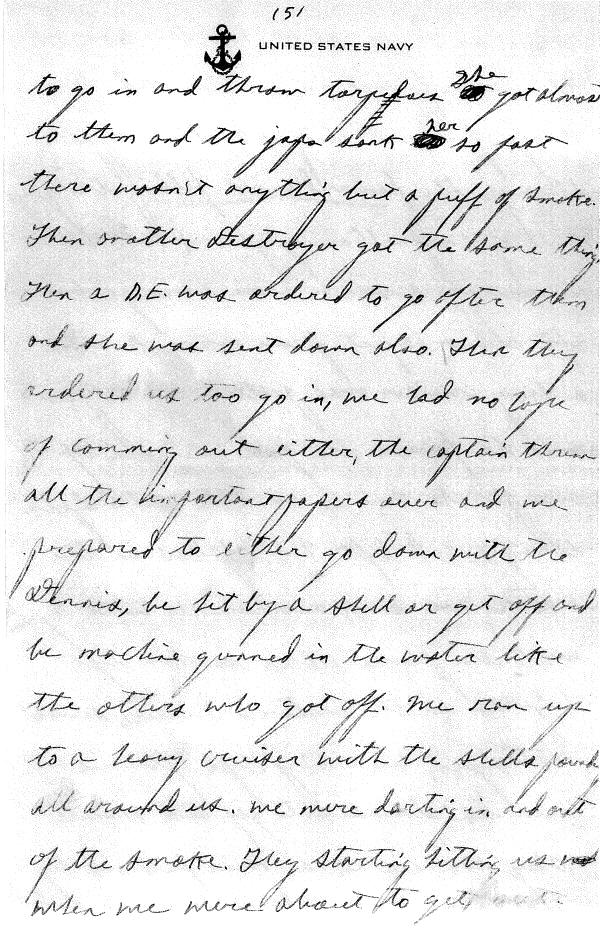 (5)
UNITED STATES NAVY
to go in and throw torpedoes she got almost
to them and the japs sank her so fast
there wasn't anything but a puff of smoke.
Then another Destroyer got the same thing.
Then a D.E. was ordered to go after them
and she was sent down also. Then they
ordered us too go in, we had no hope
of comming out either, the captain threw
all the important papers over and we
prepared to either go down with the
Dennis, be hit by a shell or get off and
be machine gunned in the water like
the others who got off. We ran up
to a heavy cruiser with the shells
all around us. we were darting in and out
of the smoke. They starting hitting us
when we were about to get out.